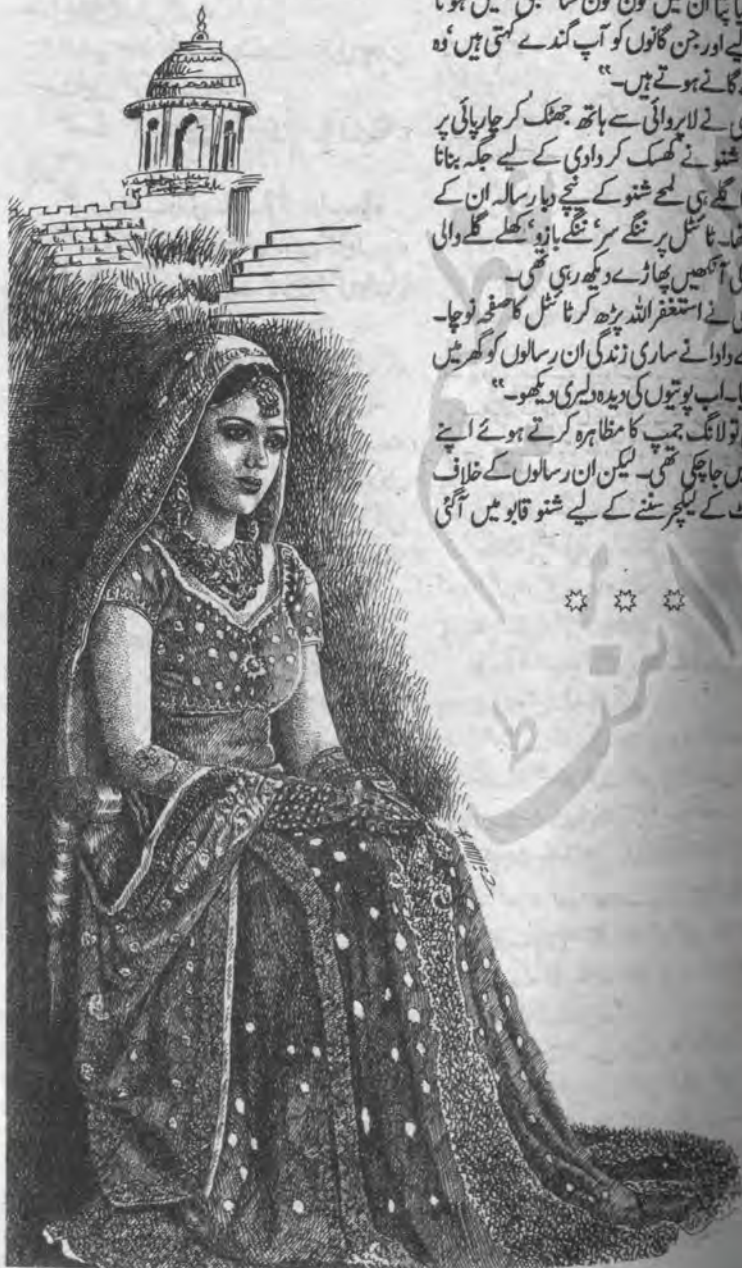 پتا ان میں کون کون سا ہوتا
لیے اور جن گانوں کو آپ گندے کہتی ہیں‘ وہ
گانے ہوتے ہیں۔“
نے لاپروائی سے ہاتھ جھٹک کر چارپائی پر
شنو نے کھسک کر دادی کے لیے جگہ بنانا
اگلے ہی لمحے شنو کے نیچے دبا رسالہ ان کے
تھا۔ ٹائٹل پر ننگے سر‘ ننگے بازو‘ کھلے گلے والی
آنکھیں پھاڑے دیکھ رہی تھی۔
نے استغفراللہ پڑھ کر ٹائٹل کا صفحہ نوچا۔
دادا نے ساری زندگی ان رسالوں کو گھر میں
اب پوتیوں کی دیدہ دلیری دیکھو۔“
تو لانگ جمپ کا مظاہرہ کرتے ہوئے اپنے
میں جا چکی تھی۔ لیکن ان رسالوں کے خلاف
کے لیکچر سننے کے لیے شنو قابو میں آگئی